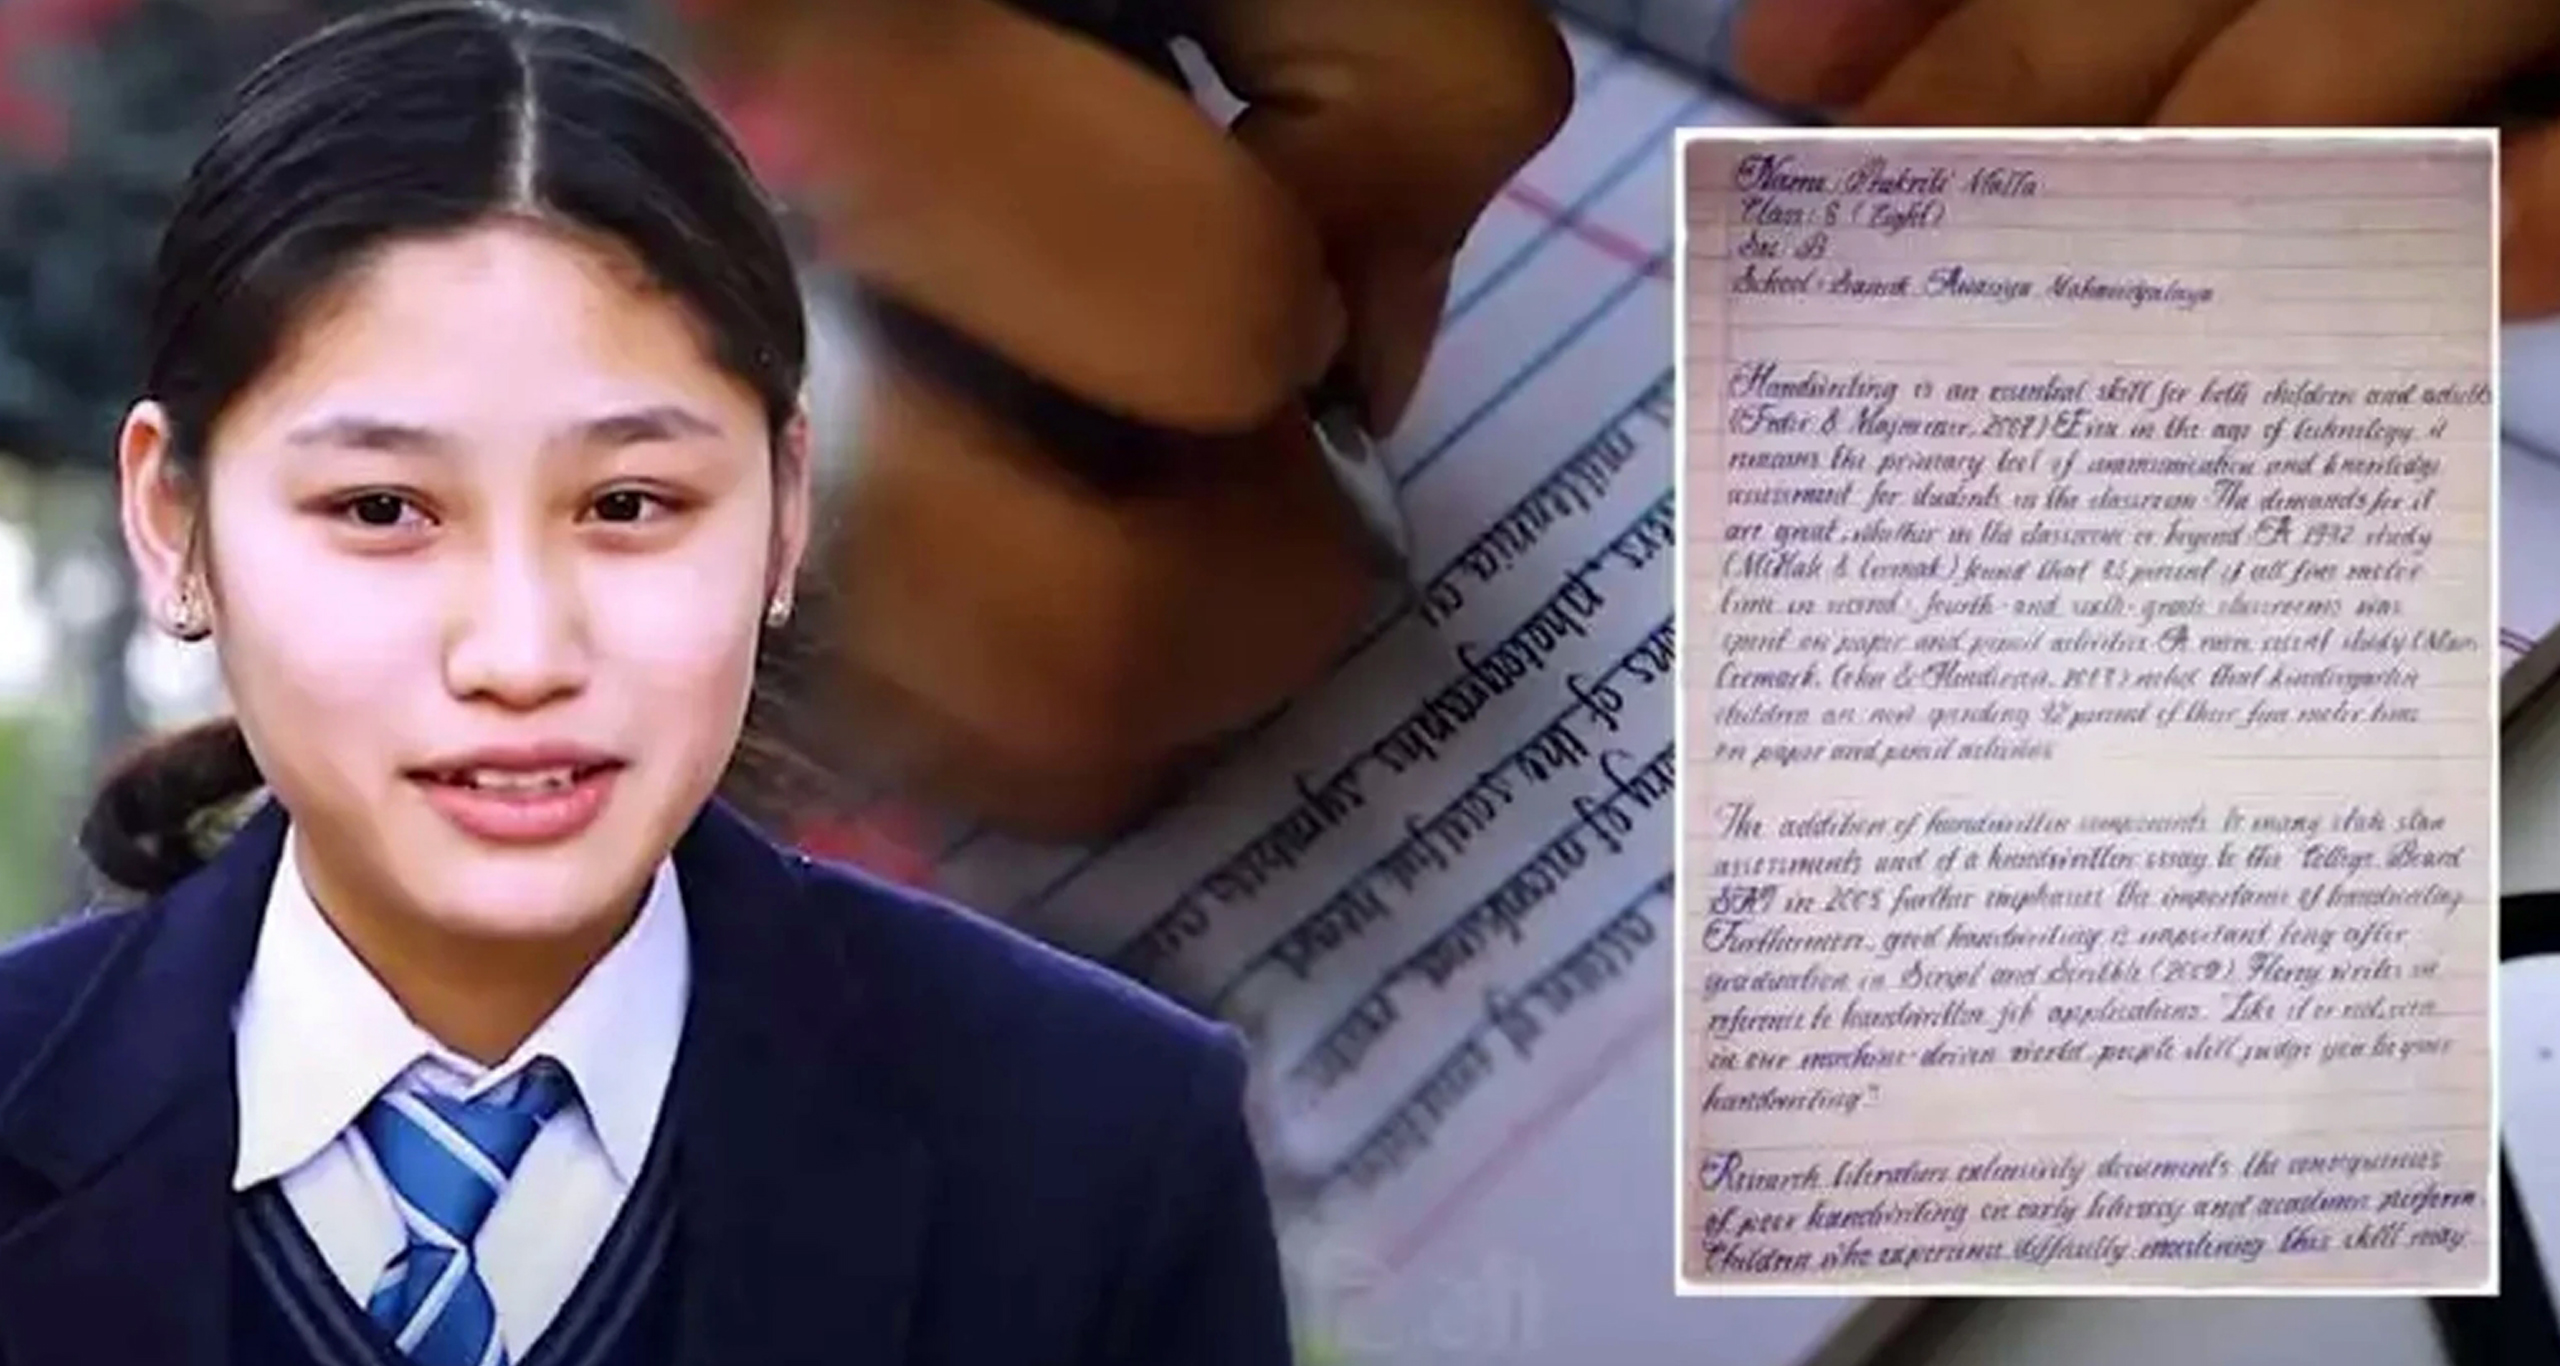 Name: Prakriti Malla
Class: 8 (Eight)
Sec: B
School: Sainik Awasiya Mahavidyalaya
Handwriting is an essential skill for both children and adults
(Feder & Majnemer, 2007) Even in the age of technology, it
remains the primary tool of communication and knowledge
assessment for students in the classroom. The demands for it
are great, whether in the classroom or beyond. A 1992 study
(McHale & Cermak) found that 85 percent of all fine motor
time in second-, fourth- and sixth-grade classrooms was
spent on paper and pencil activities. A more recent study (Marr,
Cermark, Cohn & Henderson, 2003) noted that kindergarten
children are now spending 42 percent of their fine motor time
on paper and pencil activities
The addition of handwritten components to many state stan
assessments and of a handwritten essay to the College Board
SAT in 2005 further emphasises the importance of handwriting.
Furthermore, good handwriting is important long after
graduation in Script and Scribble (2009), Florey writes in
reference to handwritten job applications, "Like it or not, even
in our machine-driven world, people still judge you by your
handwriting"
Research literature extensively documents the consequences
of poor handwriting on early literacy and academic perform
Children who experience difficulty mastering this skill may
millennia cu
photographs symbols cu
of the soulful heart